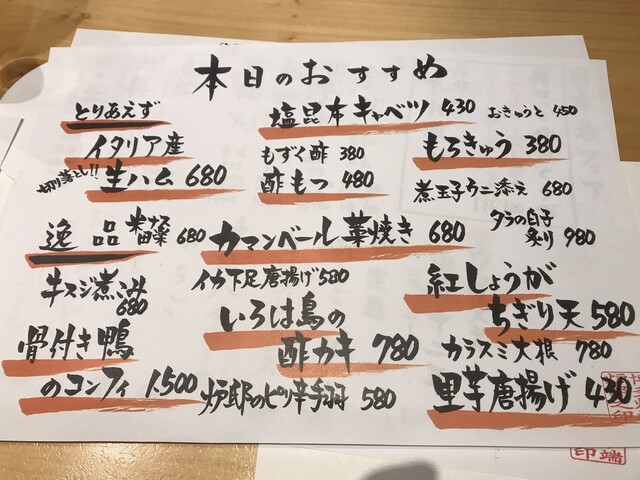 本日のおすすめ
とりあえず
塩昆布キャベツ 430
おきゅうと 450
イタリア産
切り落とし!!
生ハム 680
もずく酢 380
もろきゅう 380
酢もつ 480
煮玉子ウニ添え 680
逸品
680
カマンベール葉焼き 680
タラの白子
炙り 980
牛スジ煮込み
680
イカ下足唐揚げ 580
紅しょうが
ちぎり天 580
いろは島の
酢カキ 780
骨付き鴨
のコンフィ 1,500
カラスミ大根 780
炉邸のピリ辛手羽 580
里芋唐揚げ 430